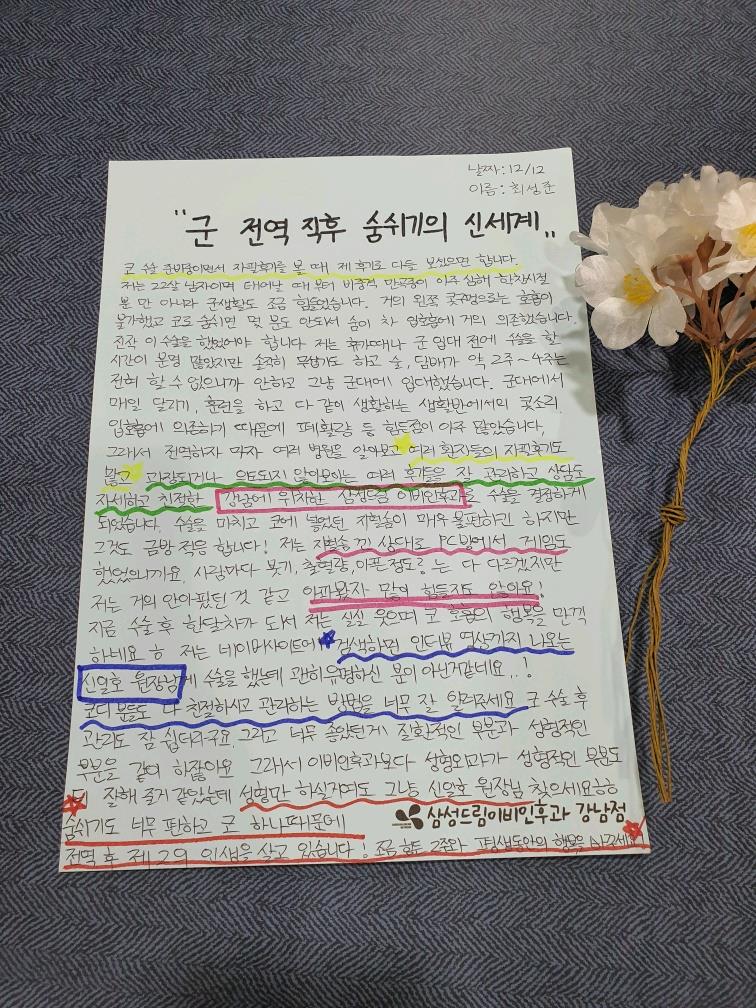 날짜: 12/12
이름: 최성준
"군 전역 직후 숨쉬기의 신세계"
코 수술 준비중이면서 자필후기를 볼 때 제 후기로 다들 보셨으면 합니다.
저는 22살 남자이며 태어날 때부터 비중격 만곡증이 아주 심해 학창시절
뿐 만 아니라 군생활도 조금 힘들었습니다. 거의 왼쪽 콧구멍으로는 호흡이
불가했고 코로 숨쉬면 몇 분도 안돼서 숨이 차 입호흡에 거의 의존했습니다.
진작 이 수술을 했었어야 합니다 저는 휴가때나 군 입대 전에 수술을 할
시간이 분명 많았지만 솔직히 무섭기도 하고 술, 담배가 약 2주~4주는
전혀 할 수 없으니까 안하고 그냥 군대에 입대했습니다. 군대에서
매일 달리기, 훈련을 하고 다 같이 생활하는 생활반에서의 콧소리,
입호흡에 의존하기 때문에 폐활량 등 힘든점이 아주 많았습니다.
그래서 전역하자 마자 여러 병원을 알아보고 여러 환자들의 자필후기도
많고 과장되거나 의도되지 않아보이는 여러 후기들을 잘 관리하고 상담도
자세하고 친절한 강남에 위치한 삼성드림 이비인후과를 수술을 결정하게
되었습니다. 수술을 마치고 코에 넣었던 지혈솜이 매우 불편하긴 하지만
그것도 금방 적응 합니다! 저는 지혈솜 낀 상태로 PC방에서 게임도
했었으니까요, 사람마다 붓기, 출혈량, 아픈 정도는 다 다르겠지만
저는 거의 안아팠던 것 같고 아파봤자 많이 힘들지도 않아요!
지금 수술 후 한달차가 되서 저는 실실 웃으며 코 호흡의 행복을 만끽
하네요 ㅎ 저는 네이버사이트에 검색하면 인터뷰 영상까지 나오는
신일호 원장님께 수술을 했는데 괜히 유명하신 분이 아닌거같네요..!
코디분들도 다 친절하시고 관리하는 방법을 너무 잘 알려주세요 코 수술 후
관리도 참 쉽더라구요. 그리고 너무 좋았던게 질환적인 부분과 성형적인
부분을 같이 하잖아요 그래서 이비인후과보다 성형외과가 성형적인 부분도
더 잘해 줄거 같았는데 성형만 하실거여도 그냥 신일호 원장님 찾으세요ㅎㅎ
숨쉬기도 너무 편하고 코 하나때문에 삼성드림이비인후과 강남점
전역 후 제 2의 인생을 살고 있습니다! 조금 힘든 2주와 평생동안의 행복을 바꾸세요